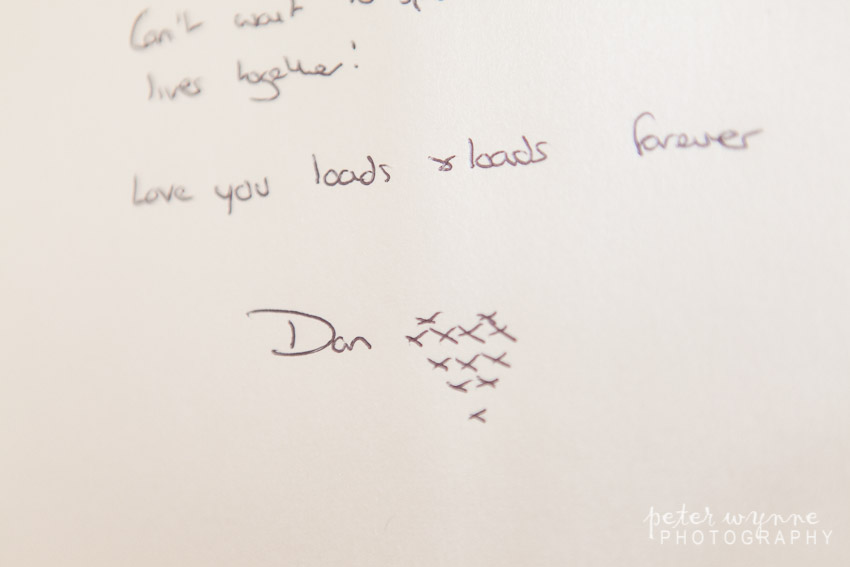 Can't wait to
lives together!
Love you loads & loads forever
Dan xx
xxxx
xxx
xx
x
peter wynne
PHOTOGRAPHY